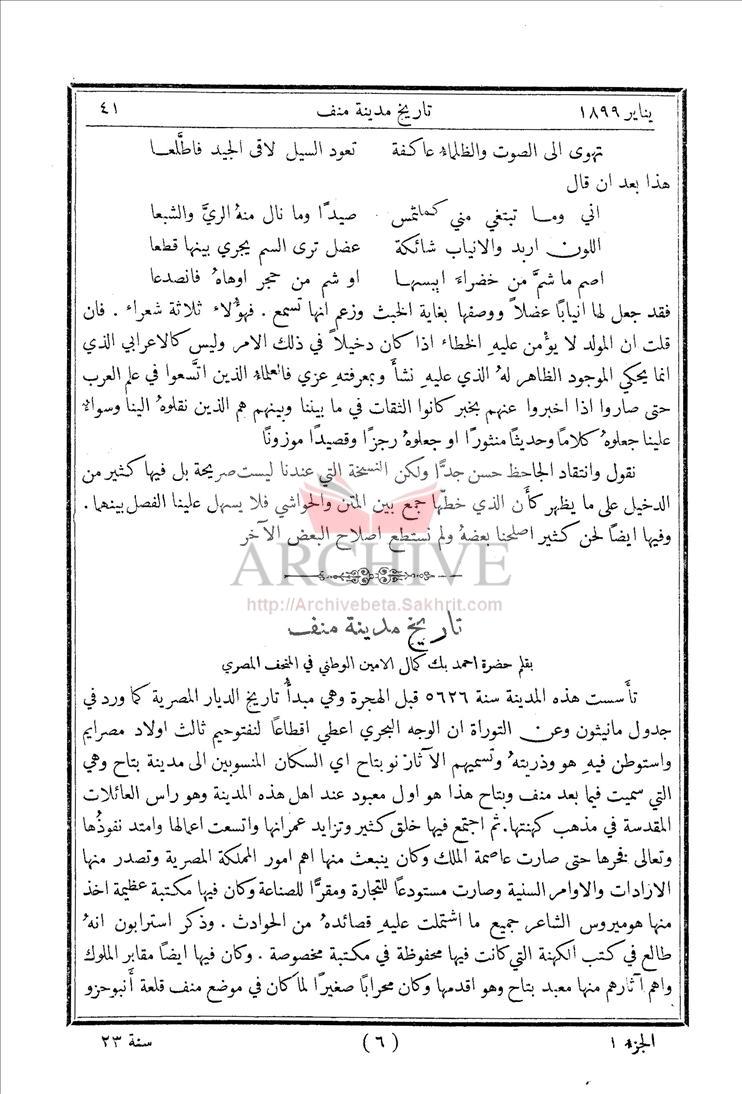 يناير ١٨٩٩ تاريخ مدينة منف ٤١
تهوى الى الصوت والظلماء عاكفة تعود السيل لاقى الجيد فاطَّلعا
هذا بعد ان قال
اني وما تبتغي مني كملتمس صيدًا وما نال منهُ الريَّ والشبعا
اللون اربد والانياب شائكة عضل ترى السم يجري بينها قطعا
اصم ما شمَّ من خضراءَ ايبسها او شم من حجر اوهاهُ فانصدعا
فقد جعل لها انيابًا عضلاً ووصفها بغاية الخبث وزعم انها تسمع . فهؤُلاء ثلاثة شعراء . فان
قلت ان المولد لا يؤمن عليهِ الخطاء اذا كان دخيلاً في ذلك الامر وليس كالاعرابي الذي
انما يحكي الموجود الظاهر لهُ الذي عليهِ نشأَ وبمعرفتهِ عزي فالعلماءُ الذين اتَّسعوا في علم العرب
حتى صاروا اذا اخبروا عنهم بخبر كانوا الثقات في ما بيننا وبينهم هم الذين نقلوهُ الينا وسواءٌ
علينا جعلوهُ كلامًا وحديثًا منثورًا او جعلوهُ رجزًا وقصيدًا موزونًا
نقول وانتقاد الجاحظ حسن جدًّا ولكن النسخة التي عندنا ليست صريحة بل فيها كثير من
الدخيل على ما يظهر كأَن الذي خطَّها جمع بين المتن والحواشي فلا يسهل علينا الفصل بينهما .
وفيها ايضًا لحن كثير اصلحنا بعضهُ ولم نستطع اصلاح البعض الآخر
ARCHIVE
http://Archivebeta.Sakhrit.com
تاريخ مدينة منف
بقلم حضرة احمد بك كمال الامين الوطني في المتحف المصري
تأَسست هذه المدينة سنة ٥٦٢٦ قبل الهجرة وهي مبدأُ تاريخ الديار المصرية كما ورد في
جدول مانيثون وعن التوراة ان الوجه البحري اعطي اقطاعًا لنفتوحيم ثالث اولاد مصرايم
واستوطن فيهِ هو وذريتهُ وتسميهم الآثار نوبتاح اي السكان المنسوبين الى مدينة بتاح وهي
التي سميت فيما بعد منف وبتاح هذا هو اول معبود عند اهل هذه المدينة وهو راس العائلات
المقدسة في مذهب كهنتها. ثم اجتمع فيها خلق كثير وتزايد عمرانها واتسعت اعمالها وامتد نفوذُها
وتعالى فخرها حتى صارت عاصمة الملك وكان ينبعث منها اهم امور المملكة المصرية وتصدر منها
الارادات والاوامر السنية وصارت مستودعًا للتجارة ومقرًّا للصناعة وكان فيها مكتبة عظيمة اخذ
منها هوميروس الشاعر جميع ما اشتملت عليهِ قصائدهُ من الحوادث . وذكر استرابون انهُ
طالع في كتب الكهنة التي كانت فيها محفوظة في مكتبة مخصوصة . وكان فيها ايضًا مقابر الملوك
واهم آثارهم منها معبد بتاح وهو اقدمها وكان محرابًا صغيرًا لما كان في موضع منف قلعة أَنبوحزو
الجزء ١ (٦) سنة ٢٣